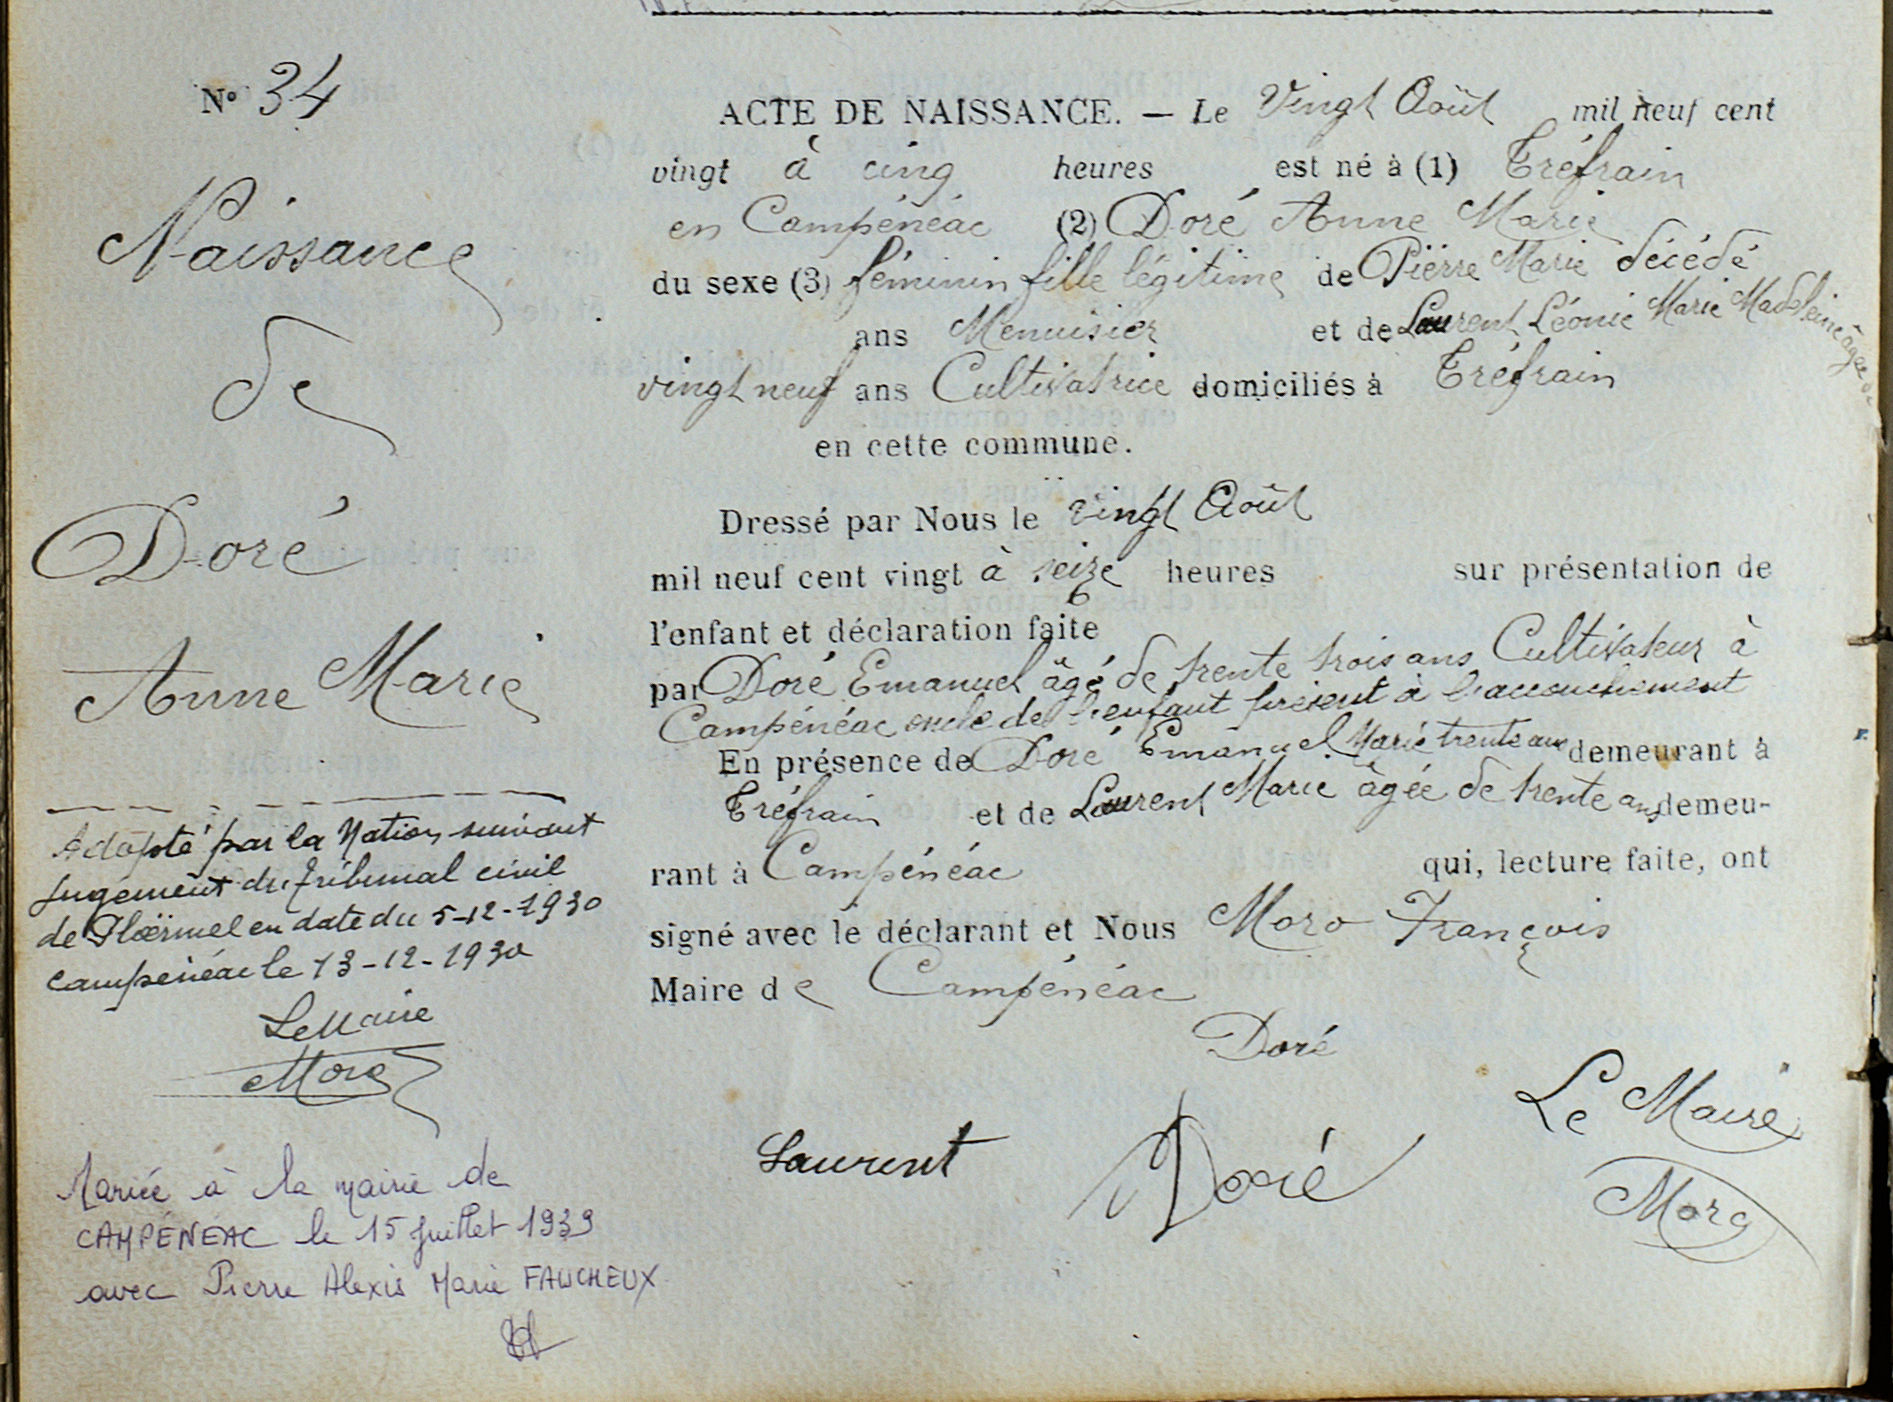 N° 34
Naissance
de
Doré
Anne Marie
Adopté par la Nation suivant
jugement du tribunal civil
de Ploërmel en date du 5-12-1930
Campénéac le 13-12-1930
Le Maire
Moro
Mariée à la mairie de
CAMPÉNÉAC le 15 juillet 1939
avec Pierre Alexis Marie FAUCHEUX
ACTE DE NAISSANCE. — Le Vingt Août mil neuf cent
vingt à cinq heures est né à (1) Tréfrain
en Campénéac (2) Doré Anne Marie
du sexe (3) féminin fille légitime de Pierre Marie décédé
ans Menuisier et de Laurent Léonie Marie Madeleine âgée de
vingt neuf ans Cultivatrice domiciliés à Tréfrain
en cette commune.
Dressé par Nous le vingt Août
mil neuf cent vingt à seize heures sur présentation de
l'enfant et déclaration faite
par Doré Emanuel âgé de trente trois ans Cultivateur à
Campénéac oncle de l'enfant présent à l'accouchement
En présence de Doré Emanuel Marie trente ans demeurant à
Tréfrain et de Laurent Marie âgée de trente ans demeu-
rant à Campénéac qui, lecture faite, ont
signé avec le déclarant et Nous Moro François
Maire de Campénéac
Doré
Laurent Doré Le Maire
Moro